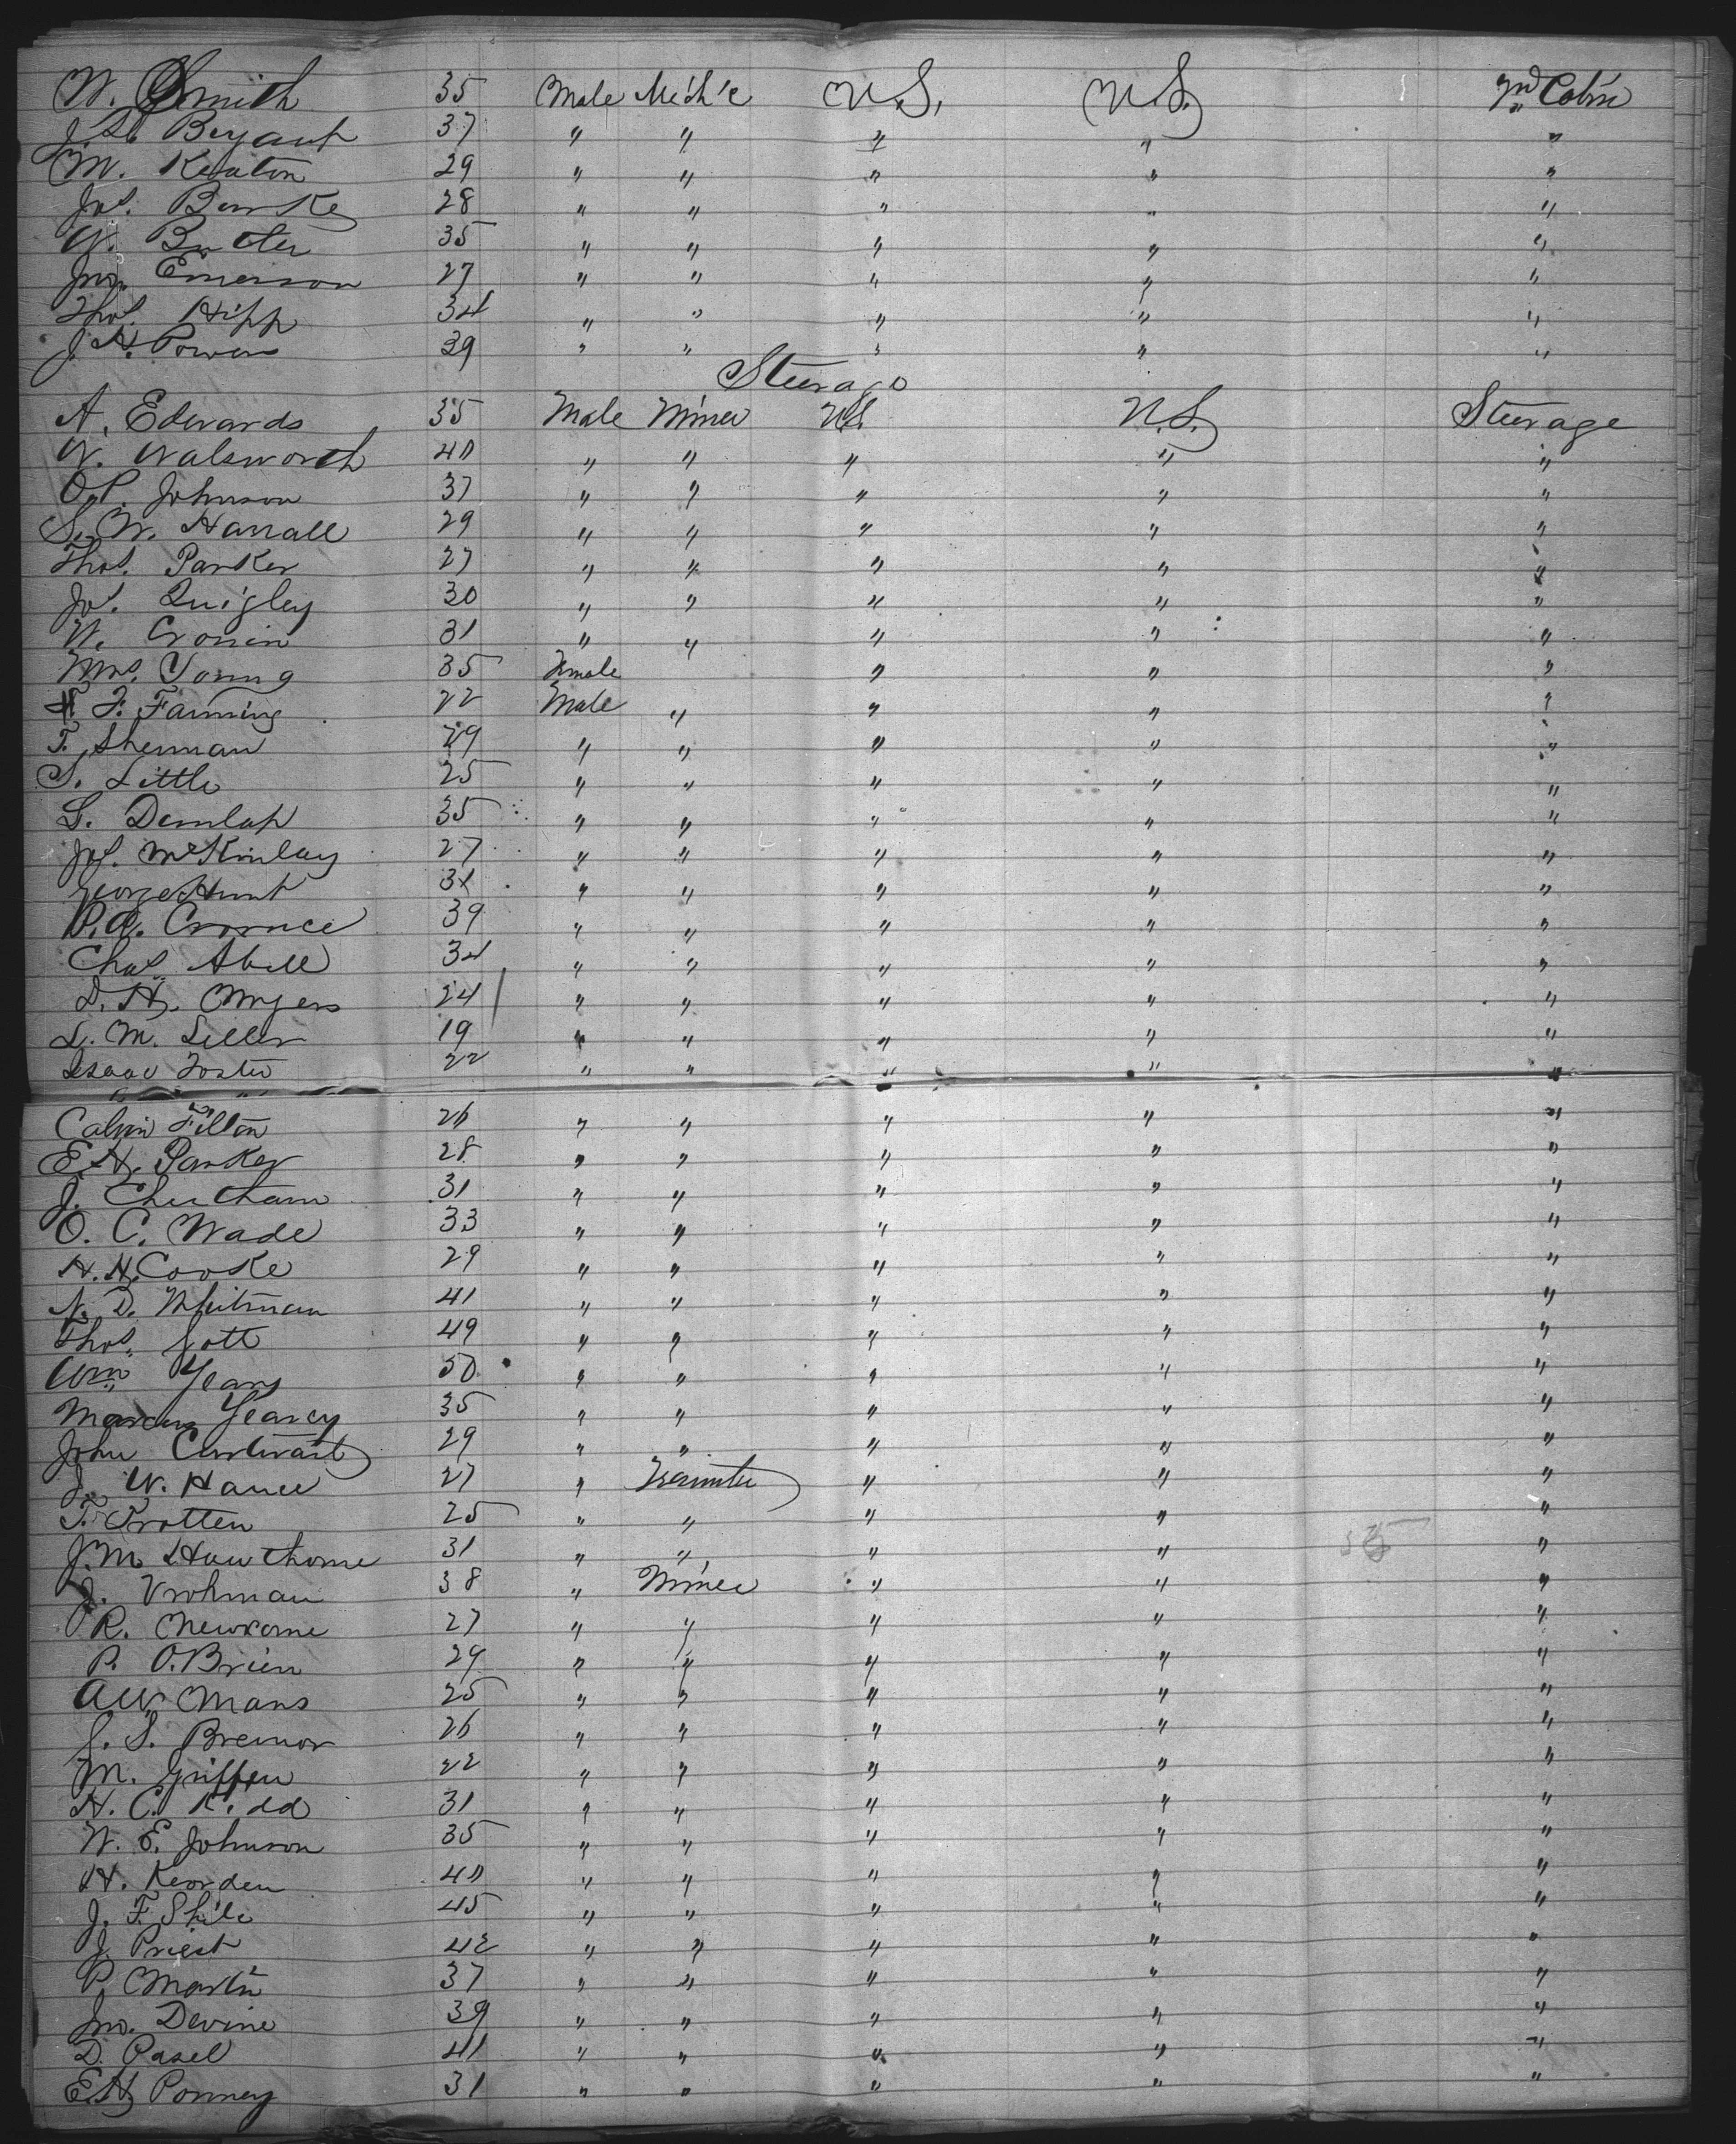 W. Smith 35 Male Mech'c U.S. U.S. 2nd Cabin
J. S. Bryant 37 " " " " "
M. Keaton 29 " " " " "
Jas. Burke 28 " " " " "
W. Butler 35 " " " " "
Jno. Emerson 27 " " " " "
Thos. Hipp 34 " " " " "
J. H. Powers 39 " " " " "
Steerage
A. Edwards 35 Male Miner U.S. U.S. Steerage
W. Walsworth 40 " " " " "
O. P. Johnson 37 " " " " "
S. W. Harrall 29 " " " " "
Thos. Parker 27 " " " " "
Jas. Quigley 30 " " " " "
W. Cronin 31 " " " " "
Mrs. Young 35 Female " " "
F. Fanning 22 Male " " " "
F. Sherman 29 " " " " "
S. Little 25 " " " " "
S. Dunlap 35 " " " " "
Jas. McKinlay 27 " " " " "
George Hunt 31 " " " " "
P. A. 39 " " " " "
Chas. Abell 34 " " " " "
D. H. Myers 24 " " " " "
L. M. Seller 19 " " " " "
Isaac Foster 22 " " " " "
Calvin Filton 26 " " " " "
E. H. Parker 28 " " " " "
J. Cheatham 31 " " " " "
O. C. Wade 33 " " " " "
H. H. Cooke 29 " " " " "
N. D. Whitman 41 " " " " "
Thos. Gott 49 " " " " "
Wm. Years 50 " " " " "
Marcus Yearcy 35 " " " " "
John 29 " " " " "
J. W. Hance 27 " " " "
T. Trotten 25 " " " " "
J. M. Hawthorne 31 " " " " "
J. Vrohman 38 " Miner " " "
R. Newcome 27 " " " " "
P. O.Brien 29 " " " " "
A. W. Mans 25 " " " " "
J. S. Bremor 26 " " " " "
M. Griffen 22 " " " " "
H. C. Kidd 31 " " " " "
W. E. Johnson 35 " " " " "
H. Rearden 40 " " " " "
J. F. 45 " " " " "
J. Priest 42 " " " " "
P. Martin 37 " " " " "
Jno. Devine 39 " " " " "
D. Pasel 41 " " " " "
E. H. Ponney 31 " " " " "